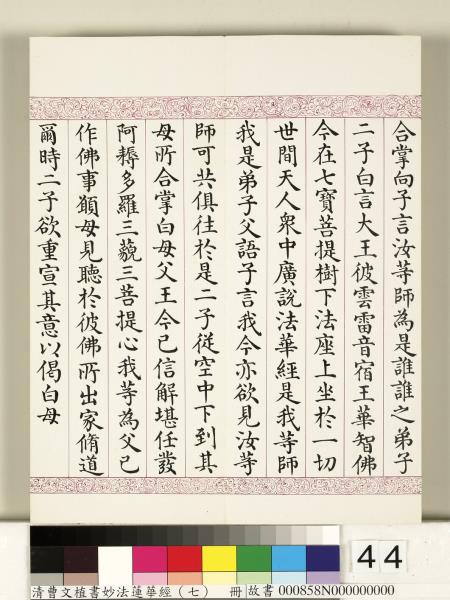 合掌向子言汝等師為是誰誰之弟子
二子白言大王彼雲雷音宿王華智佛
今在七寶菩提樹下法座上坐於一切
世間天人衆中廣說法華經是我等師
我是弟子父語子言我今亦欲見汝等
師可共俱往於是二子從空中下到其
母所合掌白母父王今已信解堪任發
阿耨多羅三藐三菩提心我等為父已
作佛事願母見聽於彼佛所出家脩道
爾時二子欲重宣其意以偈白母
44
清曹文植書妙法蓮華經（七） 冊 故書 000858N000000000